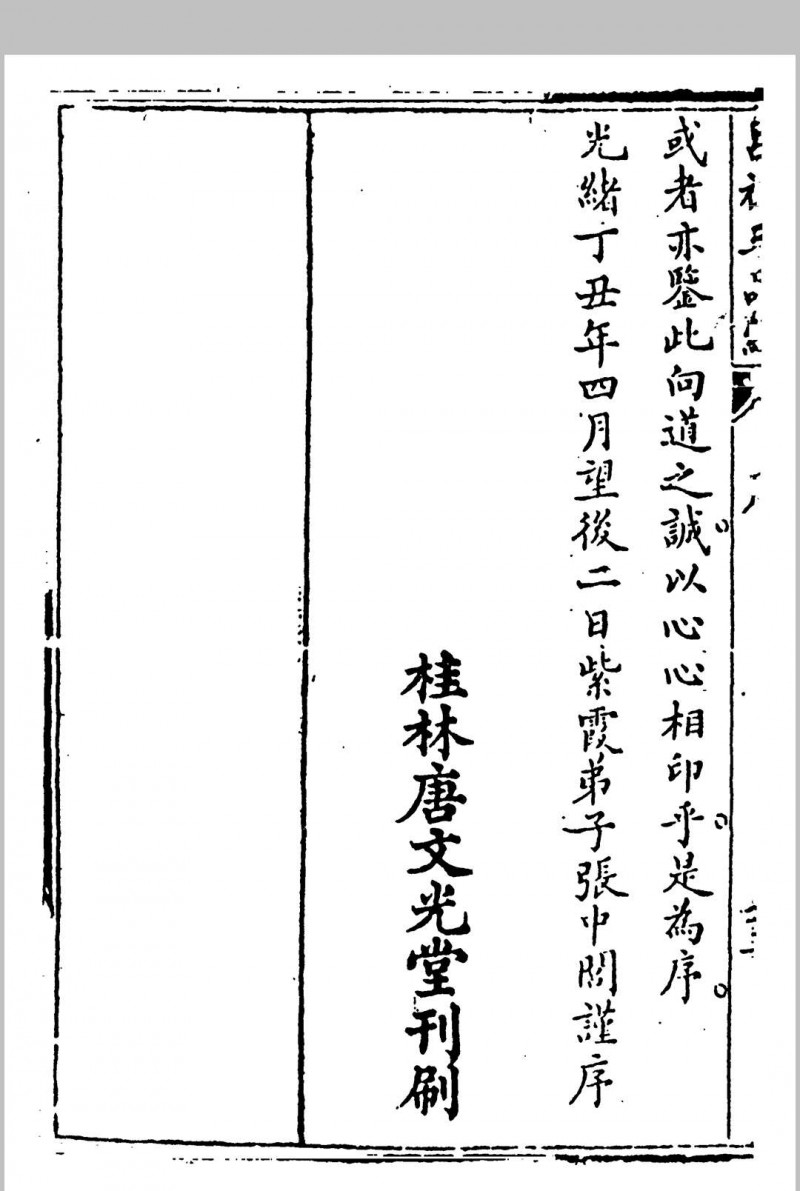 或者亦鑒此向道之誠。以心心相印乎。是為序。
光緒丁丑年四月望後二日紫霞弟子張中閣謹序
桂林唐文光堂刊刷